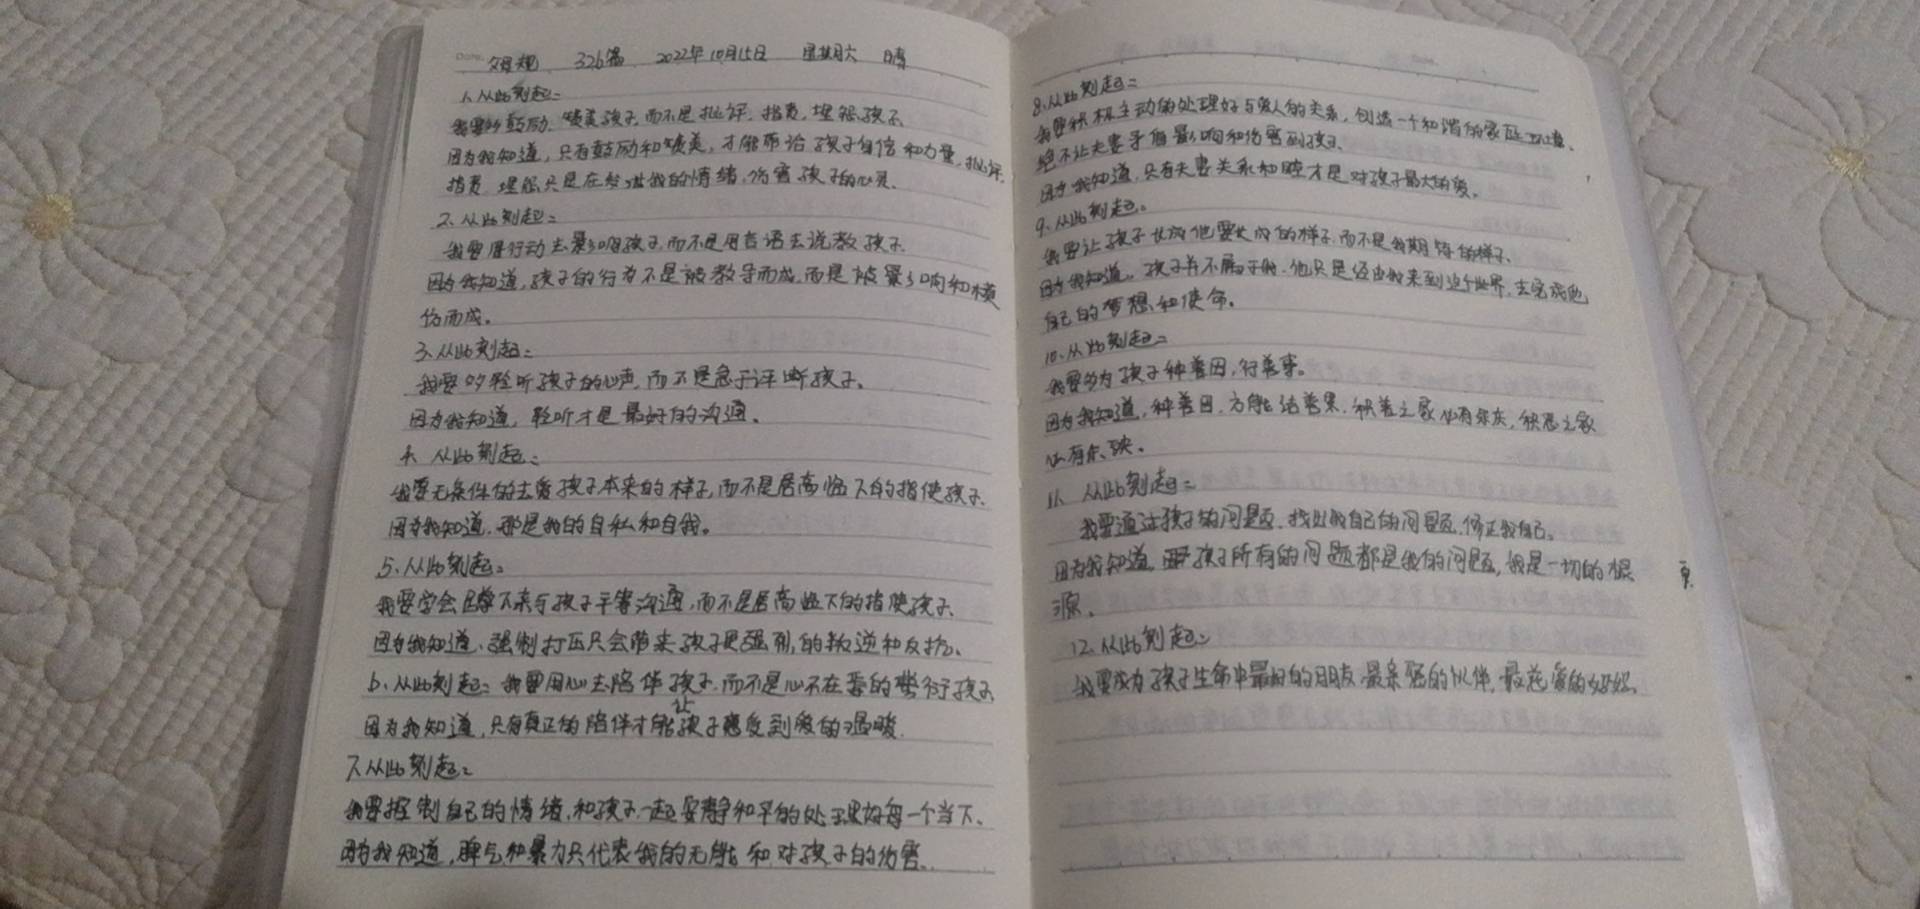 父母规 326篇 2022年10月15日 星期六 晴
1、从此刻起:
我要多鼓励、赞美孩子,而不是批评、指责、埋怨孩子、
因为我知道,只有鼓励和赞美,才能带给孩子自信和力量,批评、
指责、埋怨只是在发泄我的情绪,伤害孩子的心灵、
2、从此刻起:
我要用行动去影响孩子,而不是用言语去说教孩子、
因为我知道,孩子的行为不是被教导而成,而是被影响和模
仿而成。
3、从此刻起:
我要多聆听孩子的心声,而不是急于评断孩子。
因为我知道,聆听才是最好的沟通。
4、从此刻起:
我要无条件的去爱孩子本来的样子,而不是居高临下的指使孩子、
因为我知道,那是我的自私和自我。
5、从此刻起:
我要学会蹲下来与孩子平等沟通,而不是居高临下的指使孩子、
因为我知道、强制打压只会带来孩子更强烈的叛逆和反抗、
6、从此刻起:我要用心去陪伴孩子,而不是心不在焉的敷衍孩子
因为我知道,只有真正的陪伴才能让孩子感受到爱的温暖
7、从此刻起:
我要控制自己的情绪,和孩子一起安静和平的处理好每一个当下、
因为我知道,脾气和暴力只代表我的无能和对孩子的伤害、
8、从此刻起:
我要积极主动的处理好与爱人的关系,创造一个和谐的家庭环境、
绝不让夫妻矛盾影响和伤害到孩子、
因为我知道,只有夫妻关系和睦才是对孩子最大的爱、
9、从此刻起。
我要让孩子长成他要长成的样子,而不是我期待的样子、
因为我知道,孩子并不属于我、他只是经由我来到这个世界,去完成他
自己的梦想和使命。
10、从此刻起:
我要多为孩子种善因,行善事。
因为我知道,种善因,方能结善果、积善之家必有余庆,积恶之家
必有余殃。
11、从此刻起:
我要通过孩子的问题,找出我自己的问题,修正我自己。
因为我知道,孩子所有的问题都是我的问题,我是一切的根
源、
12、从此刻起:
我要成为孩子生命中最好的朋友,最亲密的伙伴,最慈爱的妈妈、